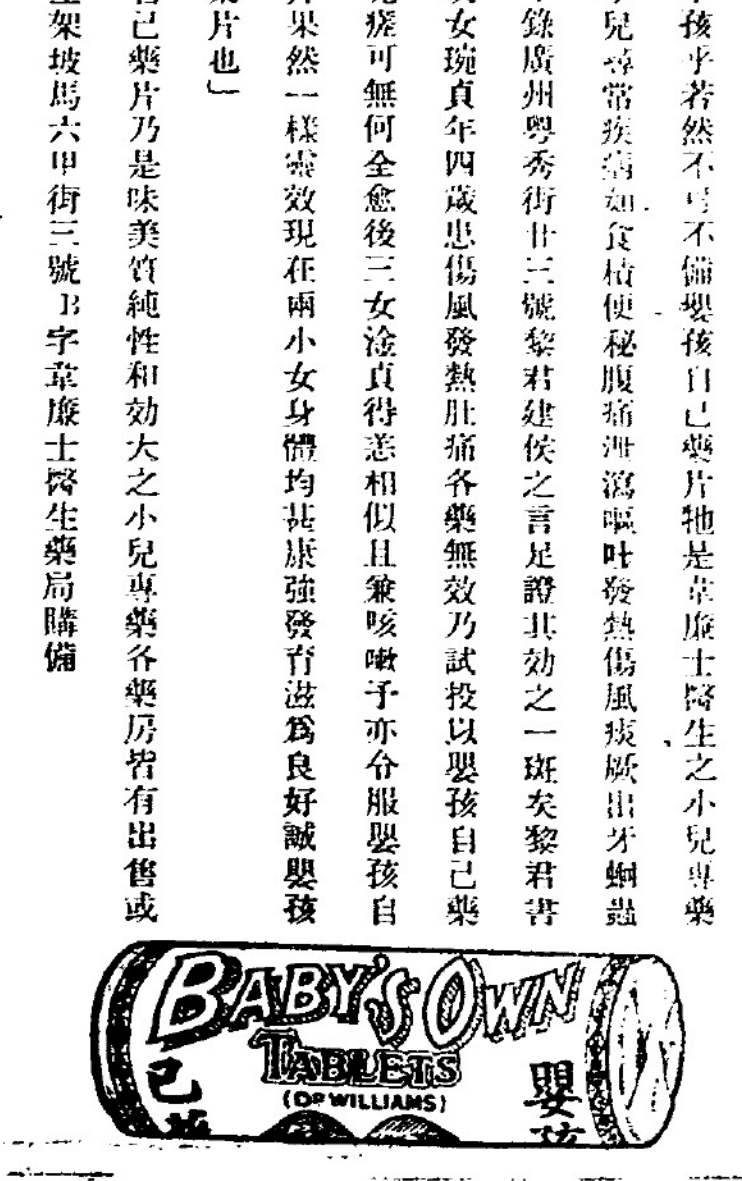 孩乎若然不可不備嬰孩自己藥片牠是韋廉士醫生之小兒專藥
兒尋常疾病如食積便秘腹痛泄瀉嘔吐發熱傷風痰厥出牙蛔蟲
錄廣州粵秀街廿三號黎君建侯之言足證其効之一斑矣黎君書
女琬貞年四歲患傷風發熱肚痛各藥無效乃試投以嬰孩自己藥
瘥可無何全愈後三女淦貞得恙相似且兼咳嗽予亦令服嬰孩自
果然一樣靈效現在兩小女身體均甚康強發育滋爲良好誠嬰孩
片也」
己藥片乃是味美質純性和効大之小兒專藥各藥房皆有出售或
架坡馬六甲街三號B字韋廉士醫生藥局購備
BABY'S OWN
TABLETS
(DR WILLIAMS)
嬰孩
己藥